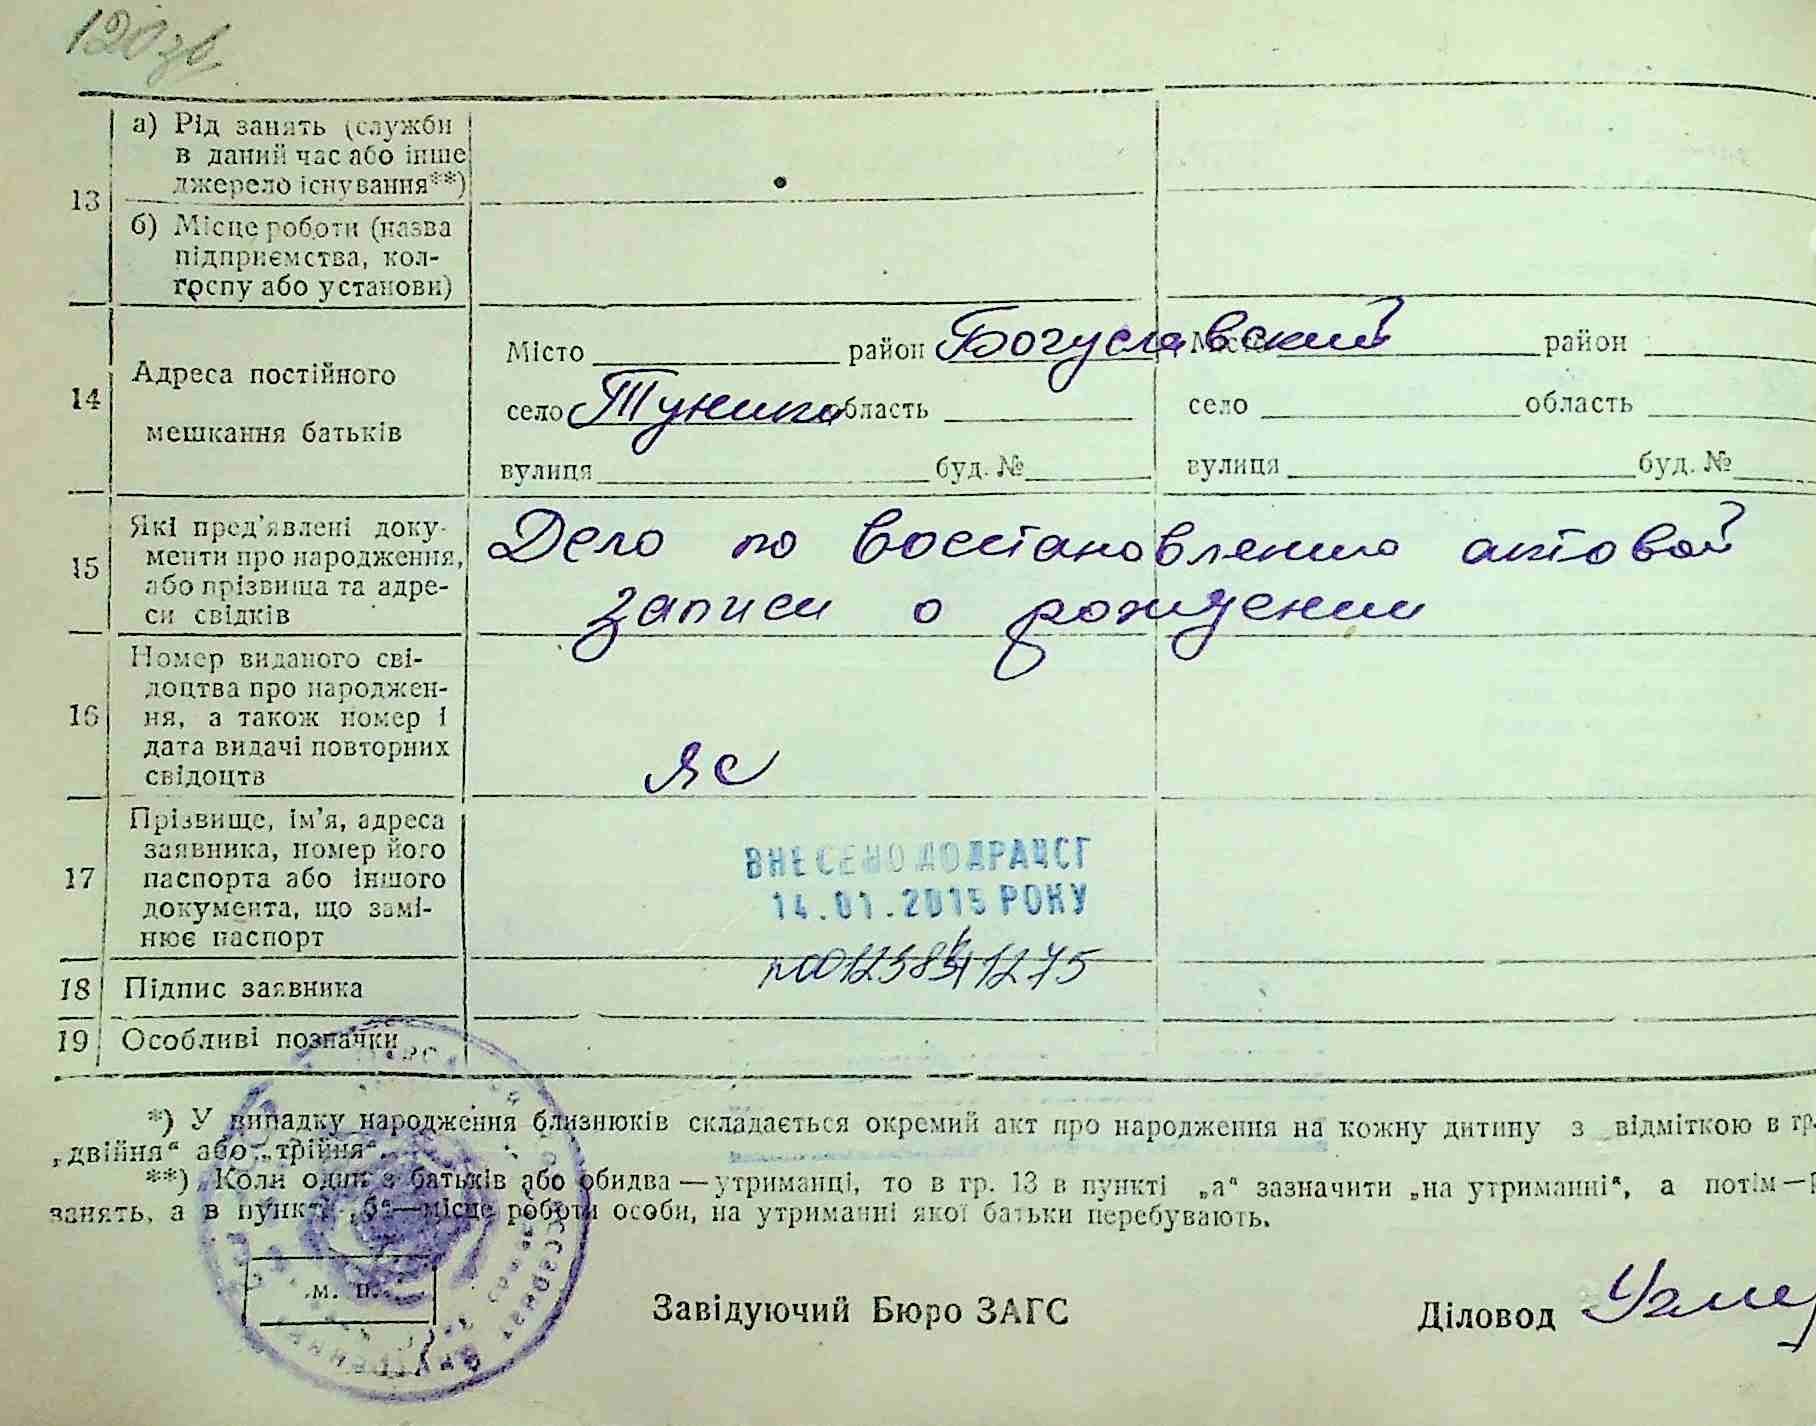 120зв
13
а) Рід занять (служби
в даний час або інше
джерело існування**)
б) Місце роботи (назва
підприємства, кол-
госпу або установи)
14
Адреса постійного
мешкання батьків
Місто район Богуславский
село Туники область
вулиця буд. №
Місто район
село область
вулиця буд. №
15
Які пред'явлені доку-
менти про народження,
або прізвища та адре-
си свідків
Дело по восстановлению актовой
записи о рождении
16
Номер виданого сві-
доцтва про народжен-
ня, а також номер і
дата видачі повторних
свідоцтв
ЯС
17
Прізвище, ім'я, адреса
заявника, номер його
паспорта або іншого
документа, що замі-
нює паспорт
ВНЕСЕНО ДО ДРАЦСГ
14.01.2015 РОКУ
18
Підпис заявника
19
Особливі позначки
*) У випадку народження близнюків складається окремий акт про народження на кожну дитину з відміткою в гр.
„двійня“ або „трійня“.
**) Коли один з батьків або обидва — утриманці, то в гр. 13 в пункті „а“ зазначити „на утриманні“, а потім —
занять, а в пункті „б“ — місце роботи особи, на утриманні якої батьки перебувають.
м. п.
Завідуючий Бюро ЗАГС
Діловод